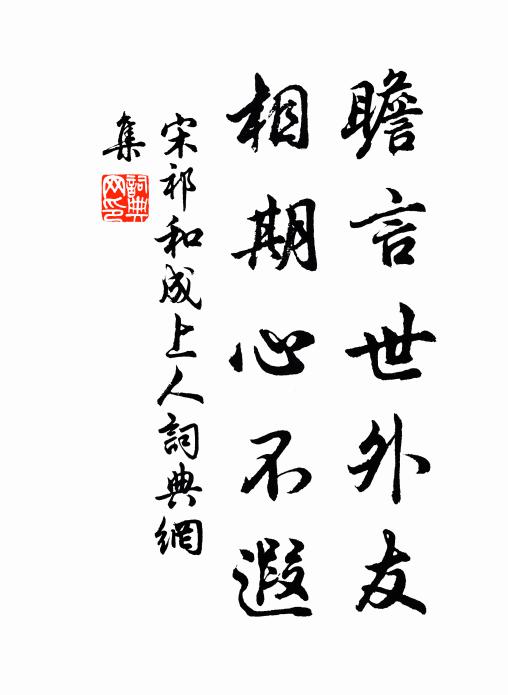 瞻言世外友
相期心不遐
宋祁和成上人詞典網
集
詞典
网印